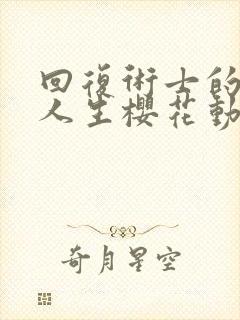 回復術士的
人生櫻花動
奇月星空